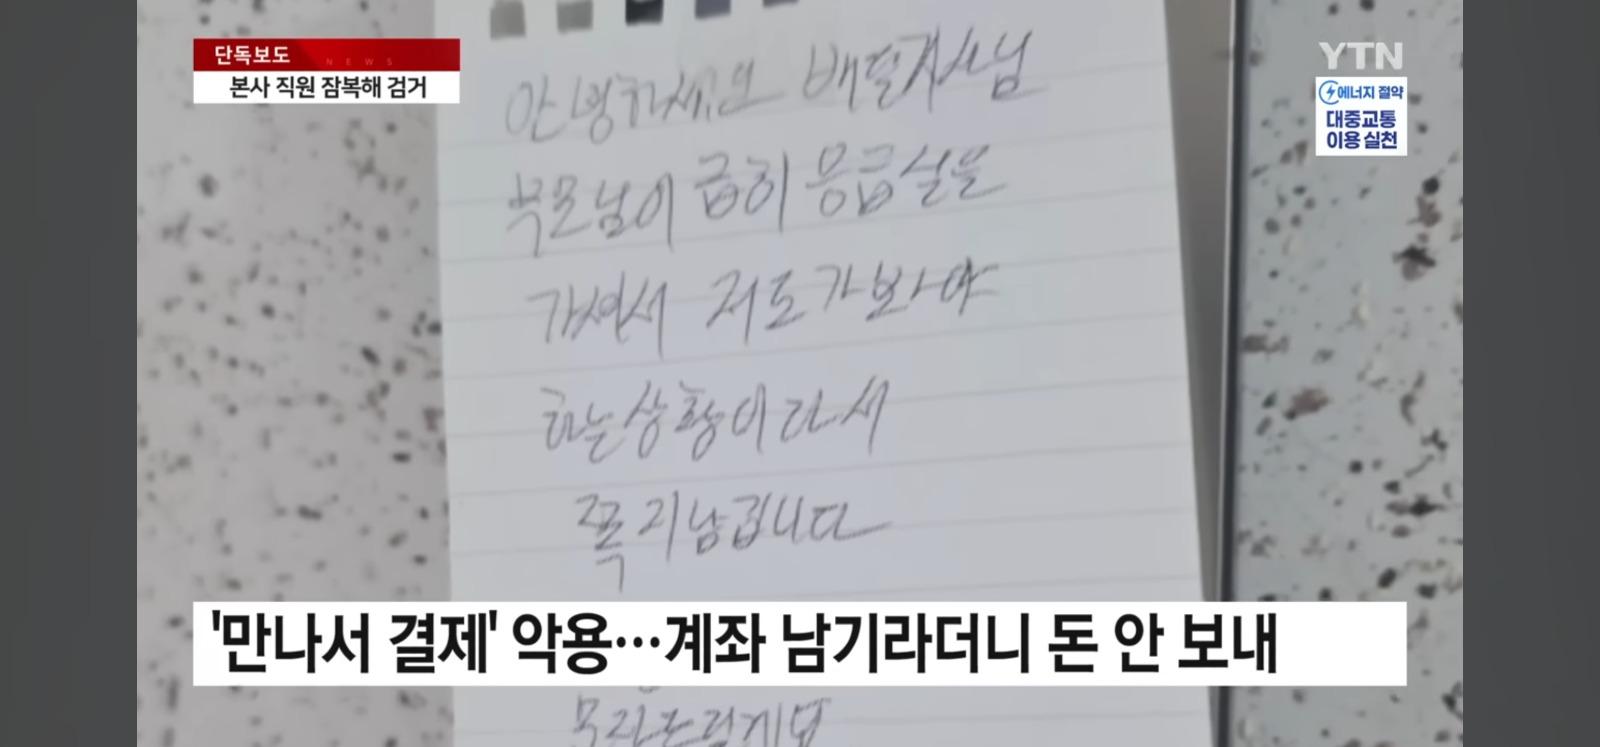 단독보도
NEWS
본사 직원 잠복해 검거
YTN
에너지 절약
대중교통
이용 실천
안녕하세요 배달기사님
부모님이 급히 응급실을
가셔서 저도 가봐야
하는 상황이라서
쪽지 남깁니다
'만나서 결제' 악용…계좌 남기라더니 돈 안 보내